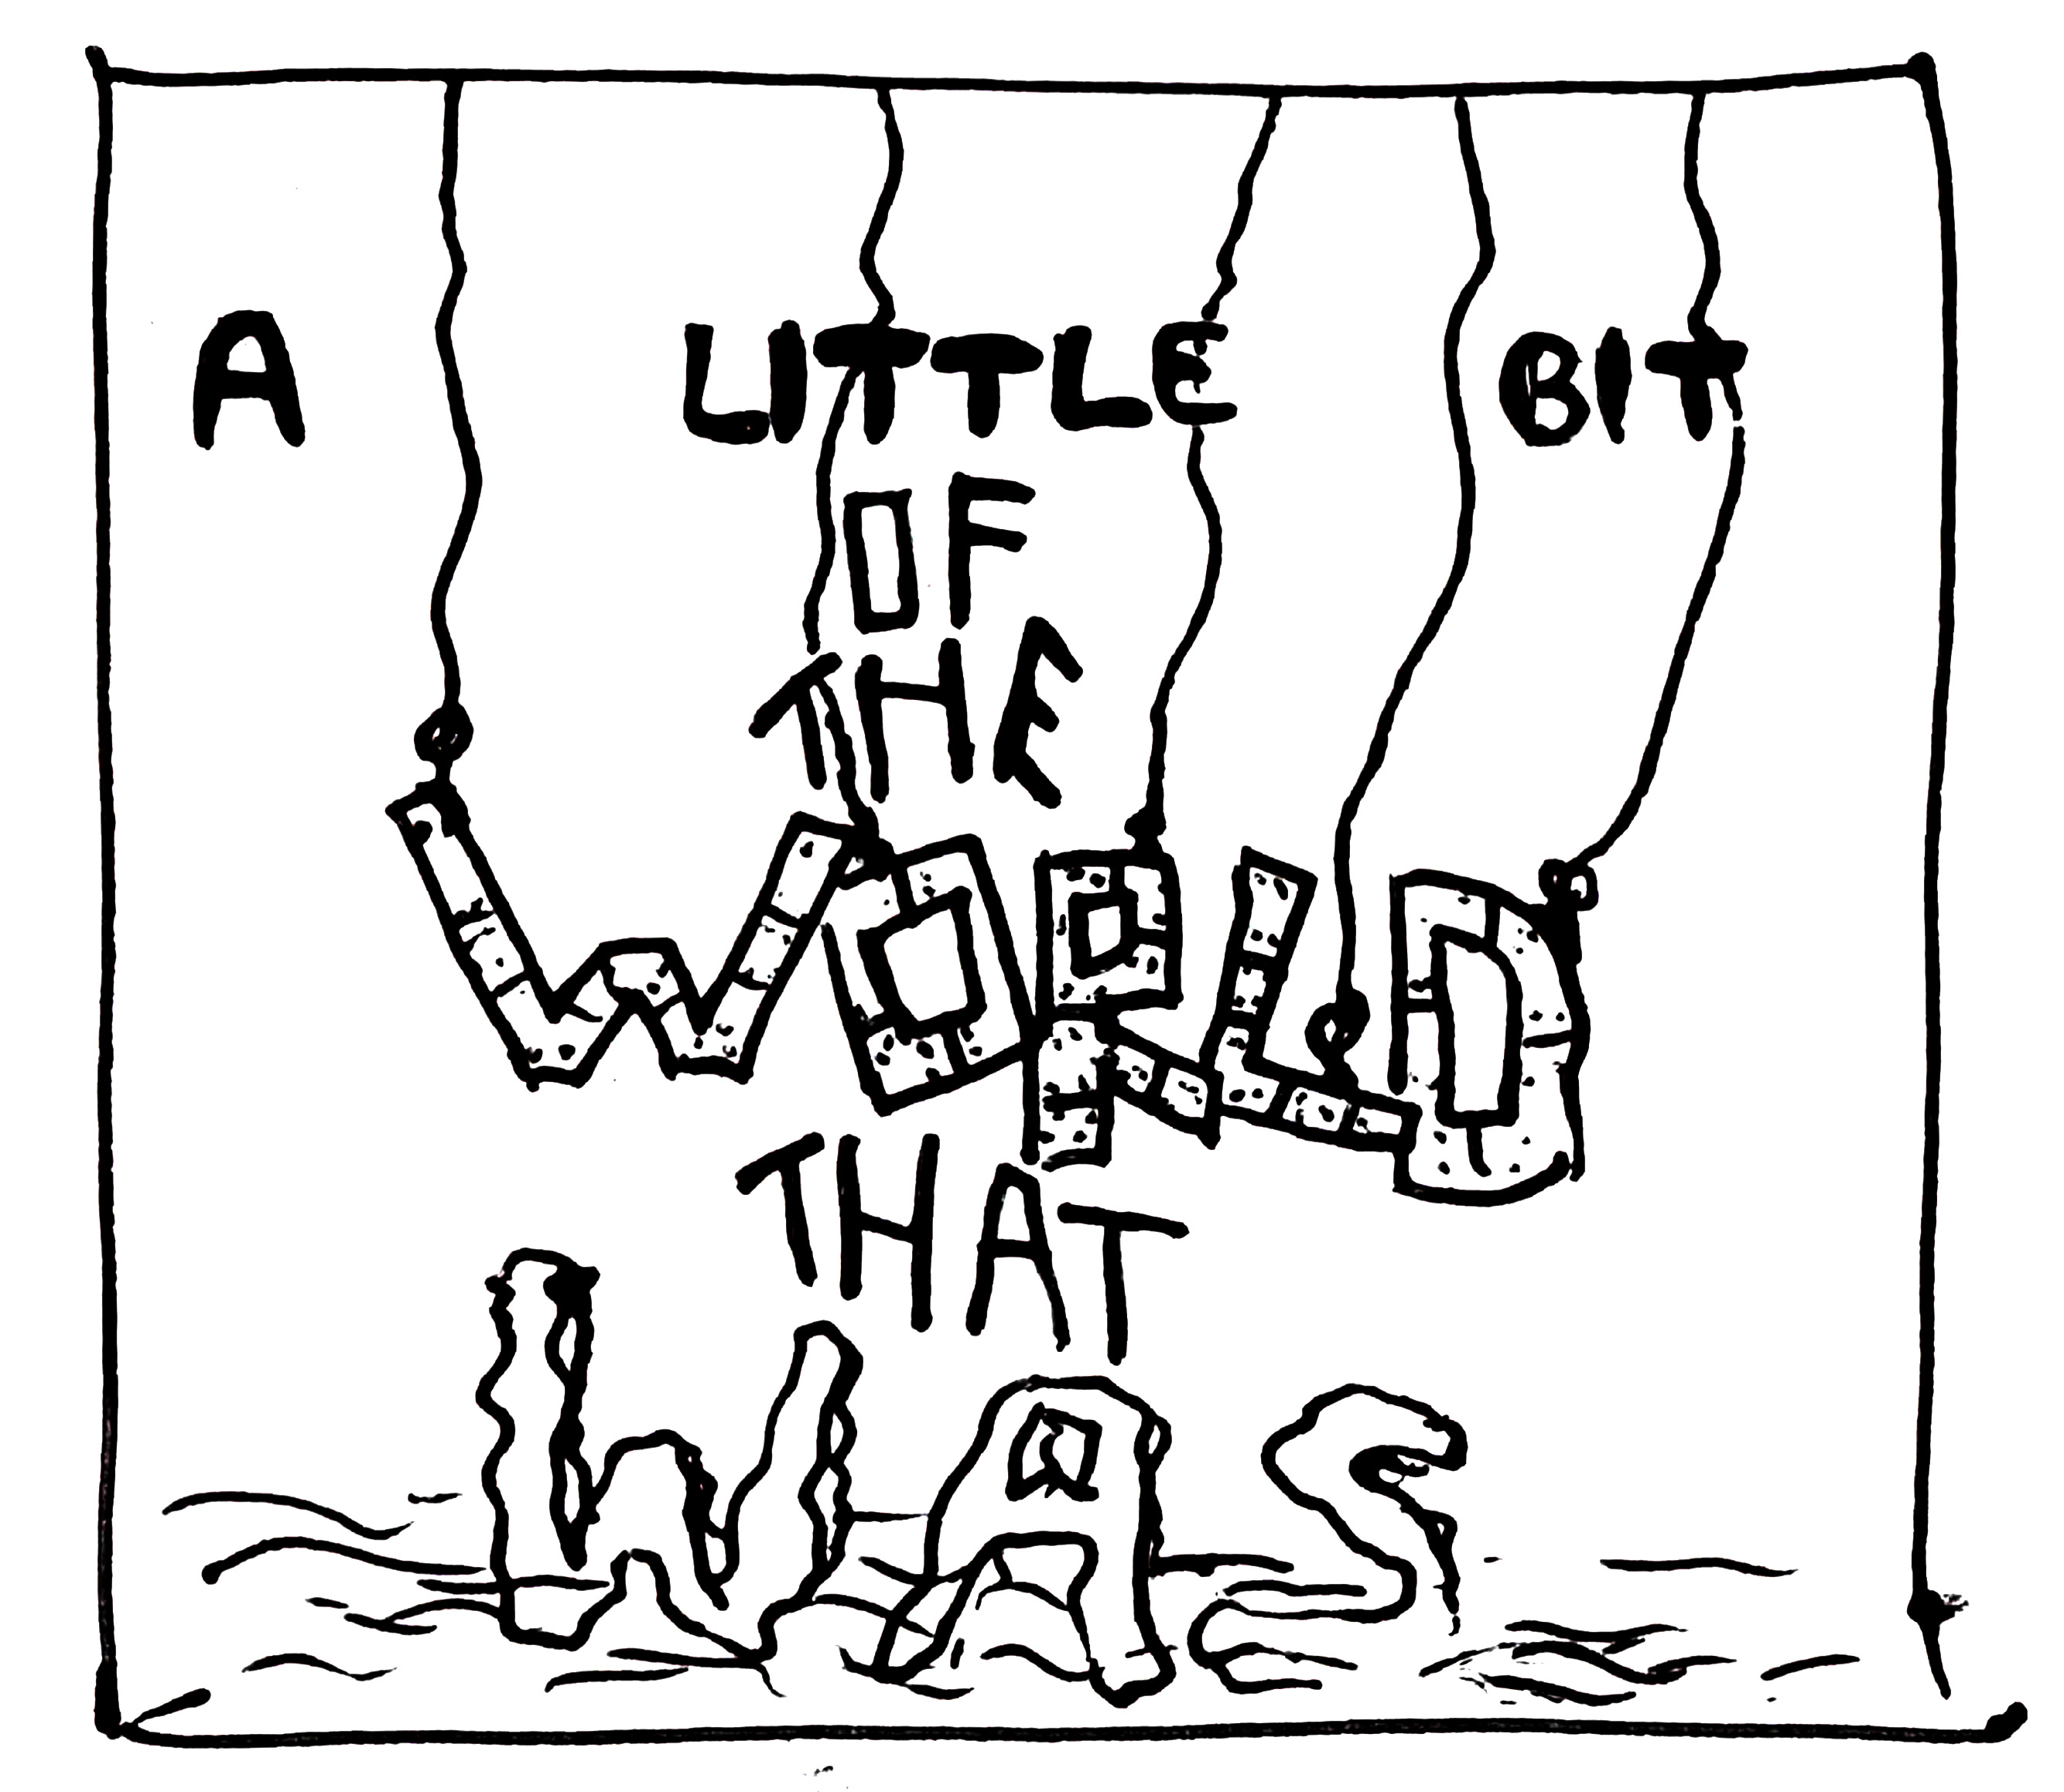 A LITTLE BIT
OF
THE
WORLD
THAT
WAS